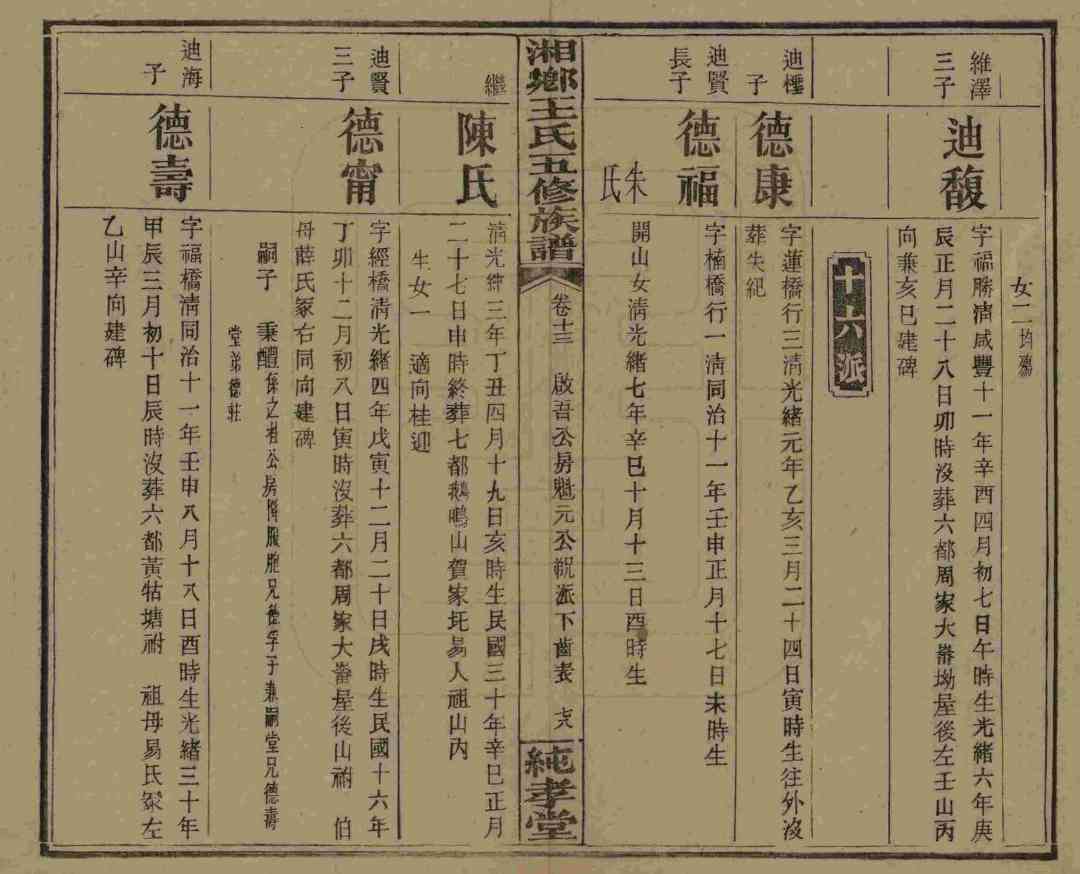 女二均殤
維澤三子
迪馥
字福勝清咸豐十一年辛酉四月初七日午時生光緒六年庚
辰正月二十八日卯時沒葬六都周家大崙坳屋後左壬山丙
向兼亥巳建碑
十六派
迪
子
德康
字蓮橋行三清光緒元年乙亥三月二十四日寅時生往外沒
葬失紀
迪賢長子
德福
字楠橋行一清同治十一年壬申正月十七日未時生
朱氏
開山女清光緒七年辛巳十月十三日酉時生
湘鄉王氏五修族譜
卷十三 啟吾公房魁元公派下齒表
純孝堂
繼
陳氏
清光緒三年丁丑四月十九日亥時生民國三十年辛巳正月
二十七日申時終葬七都鵝鳴山賀家圫易人祖山內
生女一 適向桂迎
迪賢三子
德甯
字經橋清光緒四年戊寅十二月二十日戌時生民國十六年
丁卯十二月初八日寅時沒葬六都周家大崙屋後山祔 伯
母薛氏冢右同向建碑
嗣子 秉醴係之祖公房降服胞兄德孚子兼嗣堂兄德壽
堂弟德莊
迪海子
德壽
字福橋清同治十一年壬申八月十八日酉時生光緒三十年
甲辰三月初十日辰時沒葬六都黃牯塘祔 祖母易氏冢左
乙山辛向建碑